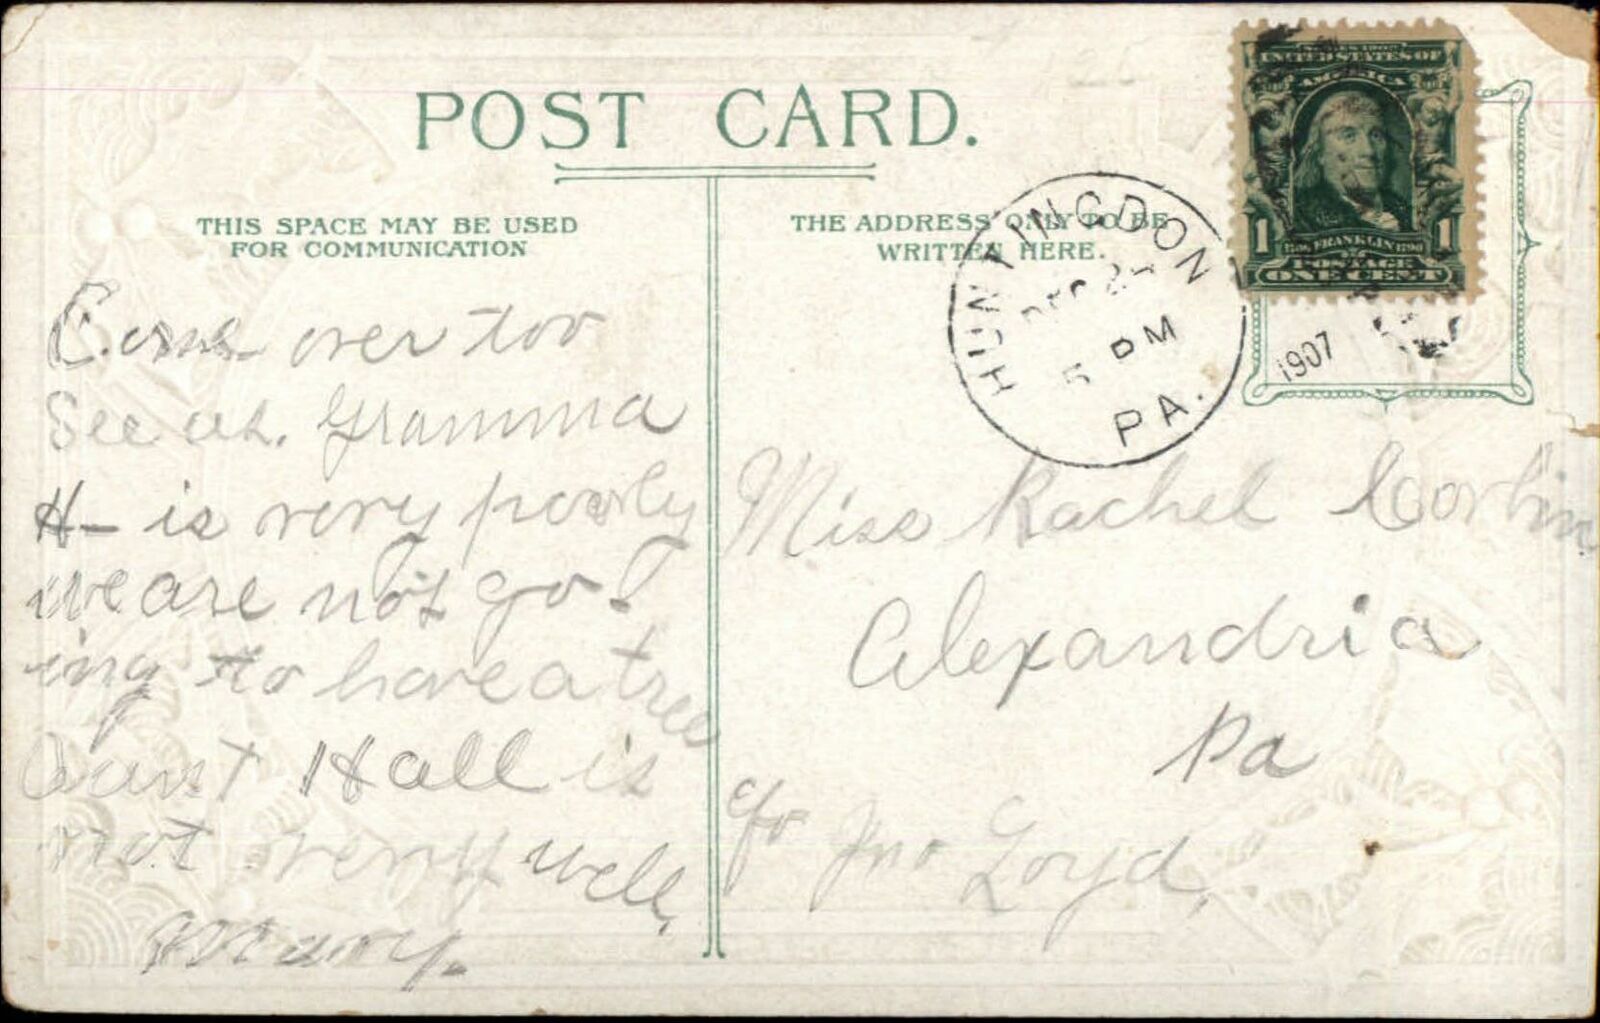 POST CARD.
THIS SPACE MAY BE USED
FOR COMMUNICATION
THE ADDRESS ONLY TO BE
WRITTEN HERE.
SERIES 1902
UNITED STATES OF
AMERICA
1 1706 FRANKLIN 1790 1
POSTAGE
ONE CENT
HUNTINGDON
DEC
5 PM
PA.
1907
Come over too
See us. Gramma
H- is very poorly
we are not go-
ing to have a tree
Aunt Hall is
not very well,
Mary.
Miss Rachel Corbin
Alexandria
Pa
c/o Jno Loyd,